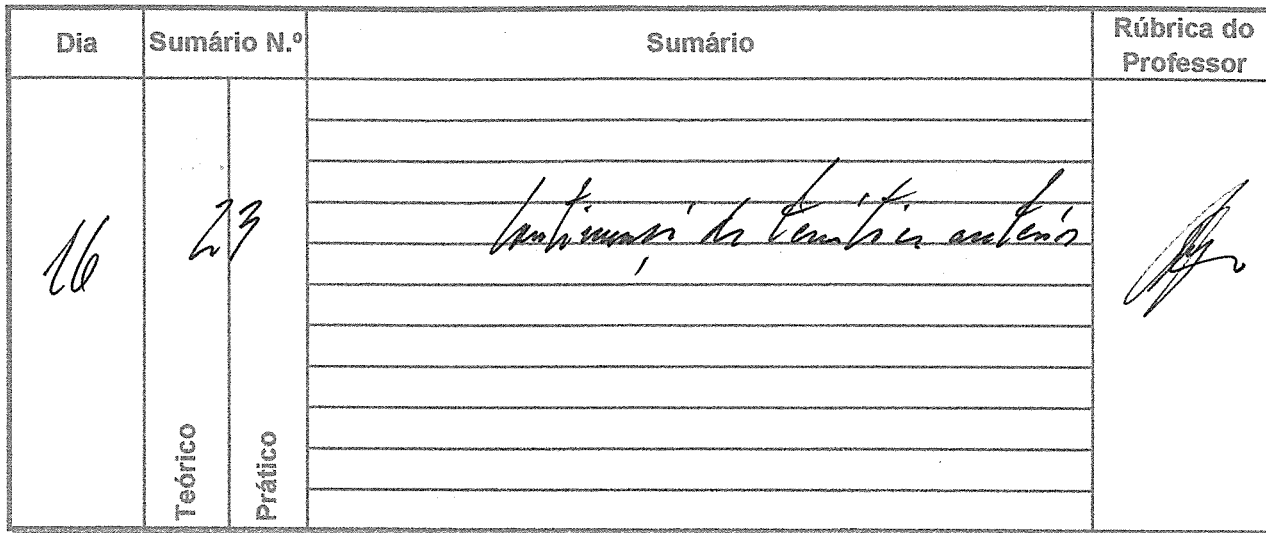 Dia Sumário N.º Sumário Rúbrica do Professor
16 23 Continuação da temática anterior
Teórico Prático